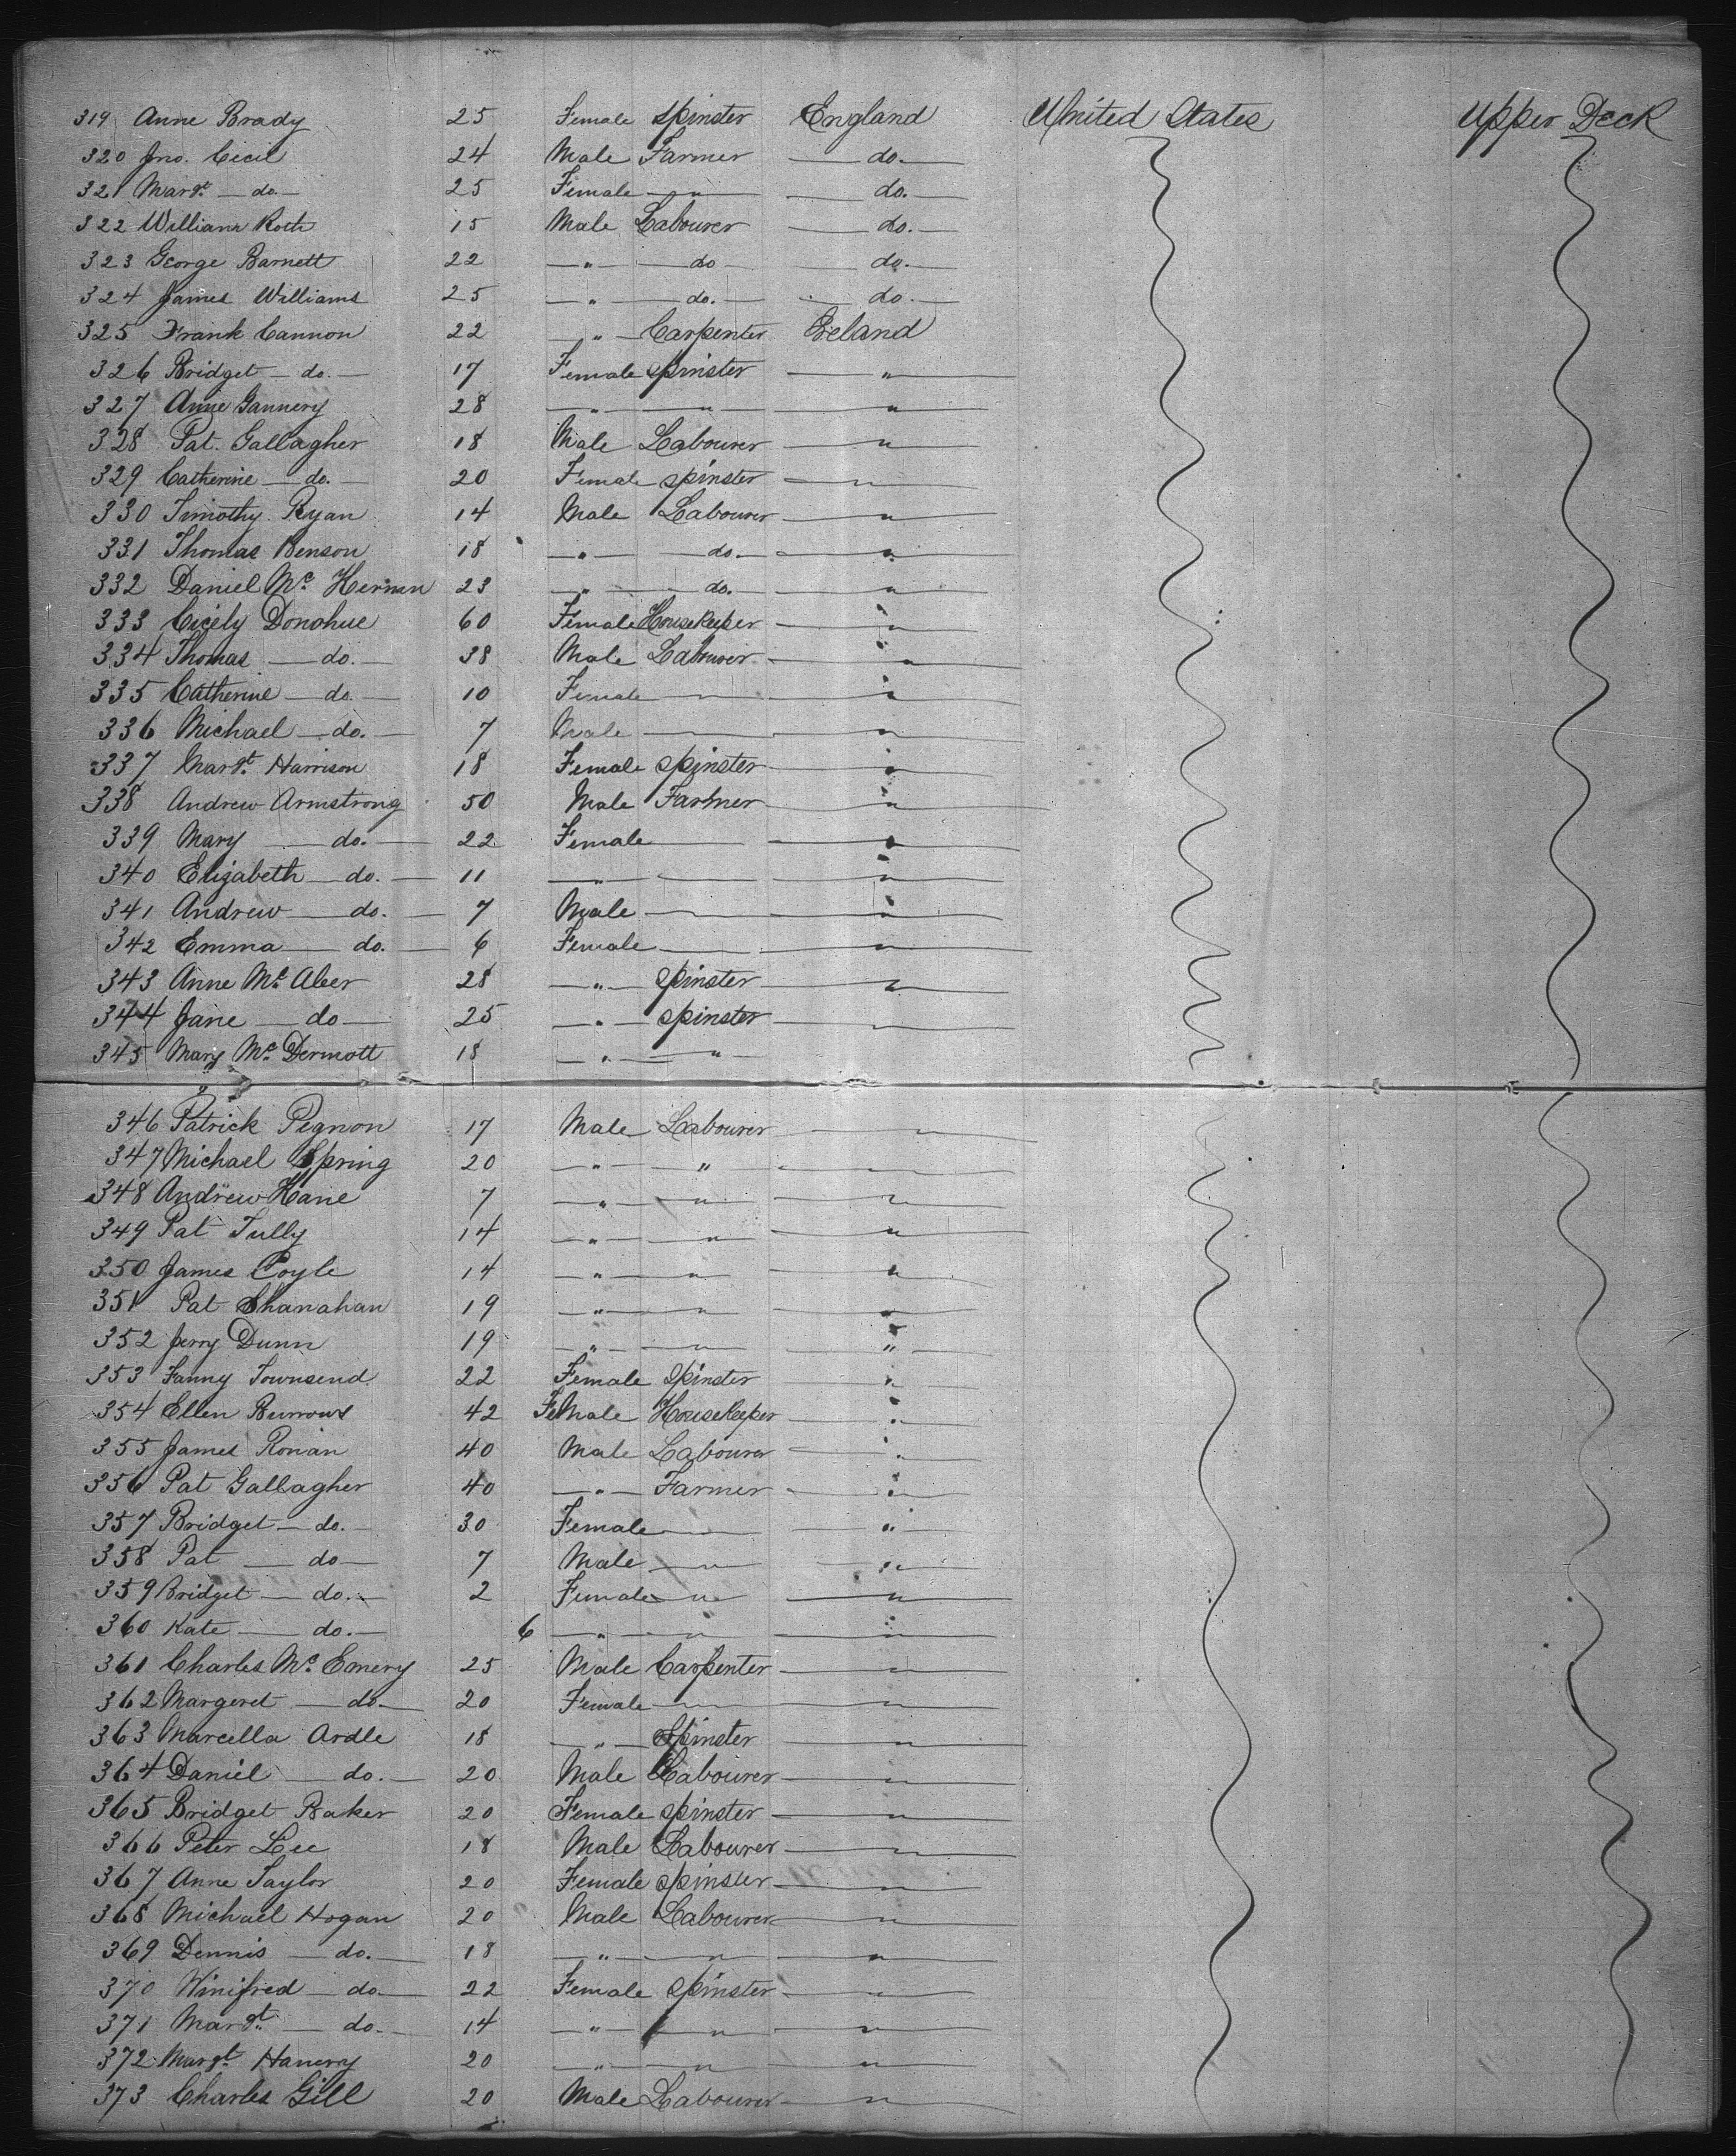 319 Anne Brady 25 Female Spinster England United States Upper Deck
320 Jno. Cecil 24 Male Farmer — do. —
321 Margt. — do — 25 Female — " — — do. —
322 William Roth 15 Male Labourer — do. —
323 George Barnett 22 — " — — do — — do. —
324 James Williams 25 — " — — do. — — do. —
325 Frank Cannon 22 — " — Carpenter Ireland
326 Bridget — do. — 17 Female Spinster — " —
327 Anne Gannery 28 — " — — " — — " —
328 Pat. Gallagher 18 Male Labourer — " —
329 Catherine — do. — 20 Female Spinster — " —
330 Timothy Ryan 14 Male Labourer — " —
331 Thomas Benson 18 — " — — do — — " —
332 Daniel Mc. Hernan 23 — " — — do. — — " —
333 Cicely Donohue 60 Female Housekeeper — " —
334 Thomas — do. — 38 Male Labourer — " —
335 Catherine — do. — 10 Female — " — — " —
336 Michael — do. — 7 Male — " — — " —
337 Margt. Harrison 18 Female Spinster — " —
338 Andrew Armstrong 50 Male Farmer — " —
339 Mary — do. — 22 Female — — " —
340 Elizabeth — do. — 11 — " — — — " —
341 Andrew — do. — 7 Male — " — — " —
342 Emma — do. — 6 Female — — " —
343 Anne Mc. Aleer 28 — " — Spinster — " —
344 Jane — do — 25 — " — Spinster — " —
345 Mary Mc. Dermott 18 — " — — " —
346 Patrick Pegnon 17 Male Labourer — " —
347 Michael Spring 20 — " — " — " —
348 Andrew Kane 7 — " — — " — — " —
349 Pat Tully 14 — " — — " — — " —
350 James Coyle 14 — " — — " — — " —
351 Pat Shanahan 19 — " — — " — — " —
352 Jerry Dunn 19 — " — — " — — " —
353 Fanny Townsend 22 Female Spinster — " —
354 Ellen Burrows 42 Female Housekeeper — " —
355 James Ronan 40 Male Labourer — " —
356 Pat Gallagher 40 — " — Farmer — " —
357 Bridget — do. — 30 Female — — " —
358 Pat — do — 7 Male — " — — " —
359 Bridget — do. — 2 Female — " — — " —
360 Kate — do. — 6 — " — — " — — " —
361 Charles Mc. Emery 25 Male Carpenter — " —
362 Margeret — do — 20 Female — " — — " —
363 Marcella Ardle 18 — " — Spinster — " —
364 Daniel — do. — 20 Male Labourer — " —
365 Bridget Baker 20 Female Spinster — " —
366 Peter Lee 18 Male Labourer — " —
367 Anne Taylor 20 Female Spinster — " —
368 Michael Hogan 20 Male Labourer — " —
369 Dennis — do. — 18 — " — — " — — " —
370 Winifred — do — 22 Female Spinster — " —
371 Margt. — do. — 14 — " — — " — — " —
372 Margt. 20 — " — — " — — " —
373 Charles Gill 20 Male Labourer — " —